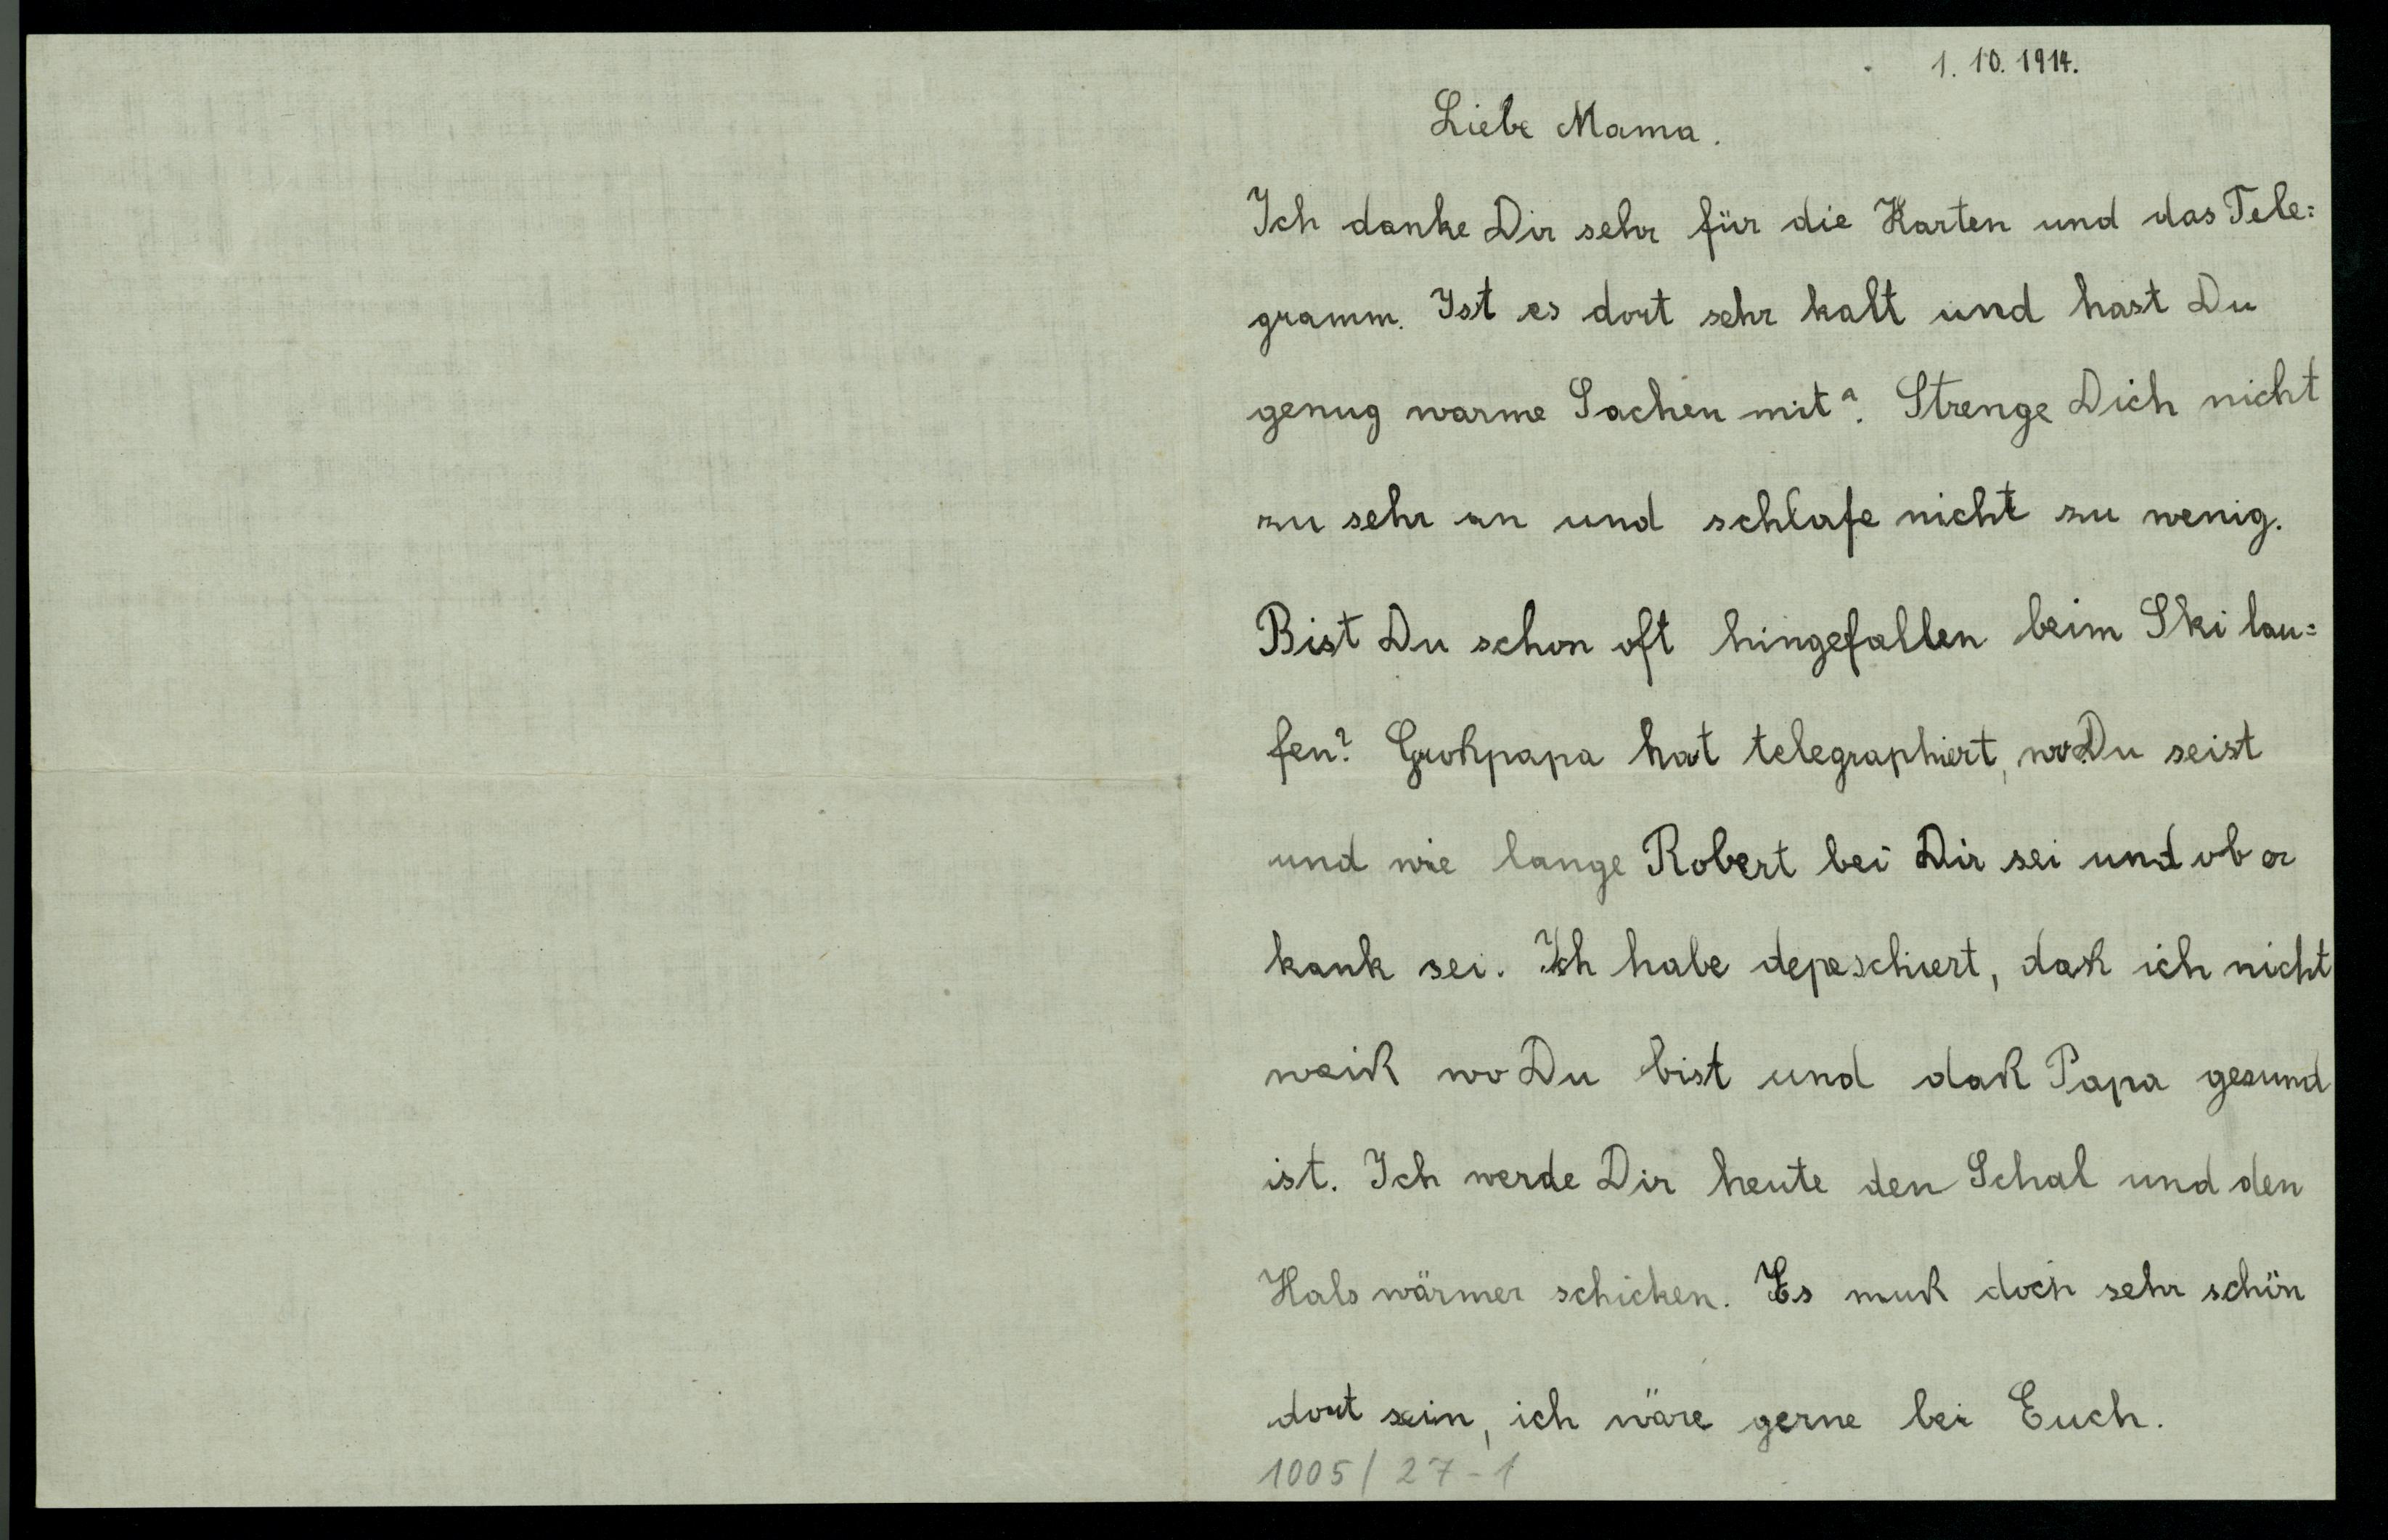 1. 10. 1914.
Liebe Mama.
Ich danke Dir sehr für die Karten und das Tele=
gramm. Ist es dort sehr kalt und hast Du
genug warme Sachen mit? Strenge Dich nicht
zu sehr an und schlafe nicht zu wenig.
Bist Du schon oft hingefallen beim Ski lau=
fen? Großpapa hat telegraphiert, wo Du seist
und wie lange Robert bei Dir sei und ob er
kank sei. Ich habe depeschiert, daß ich nicht
weiß wo Du bist und daß Papa gesund
ist. Ich werde Dir heute den Schal und den
Hals wärmer schicken. Es muß doch sehr schön
dort sein, ich wäre gerne bei Euch.
1005/27-1